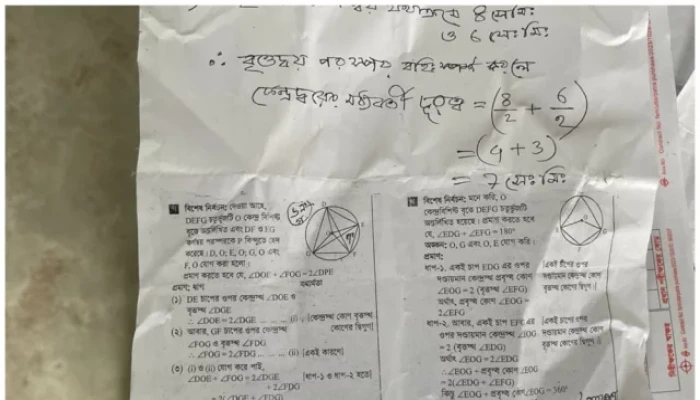 ৪ সেঃমিঃ
ও 6 সেঃ মিঃ
∴ বৃত্তদ্বয় পরস্পর বহিঃস্পর্শ করলে
কেন্দ্রদ্বয়ের মধ্যবর্তী দূরত্ব = (8/2 + 6/2)
= (4 + 3)
= 7 সেঃমিঃ
বিশেষ নির্বচন: দেওয়া আছে,
DEFG চতুর্ভুজটি O কেন্দ্র বিশিষ্ট
বৃত্তে অন্তর্লিখিত এবং DF ও EG
কর্ণদ্বয় পরস্পরকে P বিন্দুতে ছেদ
করেছে। D, O; E, O; G, O এবং
F, O যোগ করা হলো।
প্রমাণ করতে হবে যে, ∠DOE + ∠FOG = 2∠DPE
প্রমাণ: ধাপ যথার্থতা
(১) DE চাপের ওপর কেন্দ্রস্থ ∠DOE ও
বৃত্তস্থ ∠DGE
∴ ∠DOE = 2∠DGE ... ... (i) [কেন্দ্রস্থ কোণ বৃত্তস্থ
কোণের দ্বিগুণ]
(২) আবার, GF চাপের ওপর কেন্দ্রস্থ
∠FOG ও বৃত্তস্থ ∠FDG
∴ ∠FOG = 2∠FDG ... ... (ii) [একই কারণে]
(৩) (i) ও (ii) যোগ করে পাই,
∠DOE + ∠FOG = 2∠DGE [ধাপ-১ ও ধাপ-২ হতে]
+ 2∠FDG
= 2(∠DGE + ∠FDG)
বিশেষ নির্বচন: মনে করি, O
কেন্দ্রবিশিষ্ট বৃত্তে DEFG চতুর্ভুজটি
অন্তর্লিখিত হয়েছে। প্রমাণ করতে হবে
যে, ∠EDG + ∠EFG = 180°
অঙ্কন: O, G এবং O, E যোগ করি।
প্রমাণ:
ধাপ-১. একই চাপ EDG এর ওপর [একই চাপের ওপর
দণ্ডায়মান কেন্দ্রস্থ প্রবৃদ্ধ কোণ দণ্ডায়মান কেন্দ্রস্থ কোণ
∠EOG = 2 (বৃত্তস্থ ∠EFG) বৃত্তস্থ কোণের দ্বিগুণ।]
অর্থাৎ, প্রবৃদ্ধ কোণ ∠EOG =
2∠EFG
ধাপ-২. আবার, একই চাপ EFG এর [একই চাপের ওপর
ওপর দণ্ডায়মান কেন্দ্রস্থ ∠EOG দণ্ডায়মান কেন্দ্রস্থ কোণ
= 2 (বৃত্তস্থ ∠EDG) বৃত্তস্থ কোণের দ্বিগুণ।]
অর্থাৎ ∠EOG = 2∠EDG
∴ ∠EOG + প্রবৃদ্ধ কোণ ∠EOG
= 2(∠EDG + ∠EFG)
কিন্তু ∠EOG + প্রবৃদ্ধ কোণ ∠EOG = 360°